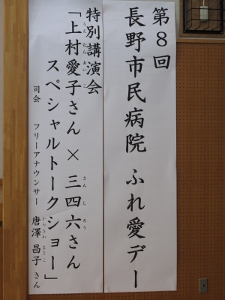 第8回
長野市民病院 ふれ愛デー
特別講演会
「上村愛子さん × 三四六さん
スペシャルトークショー」
司会 フリーアナウンサー 唐澤昌子さん